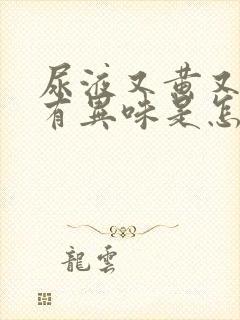 尿液又黄又
有異味是怎
龍雲